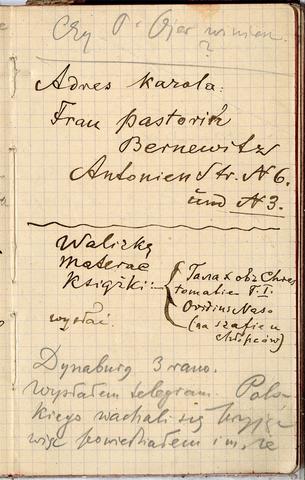 Czy P. Ojer winien
?
Adres Karola:
Frau Pastorin
Bernewitz
Antonien Str. N 6.
und N 3.
Walizkę
materac
Książki:
Галахова Chres
tomatie T. I.
Ovidius Naso
(na szafie u
chłopców)
wysłać.
Dynaburg 3 rano.
wysłałem telegram. Pols-
kiego wachali się przyjąć
więc powiedziałem im, że